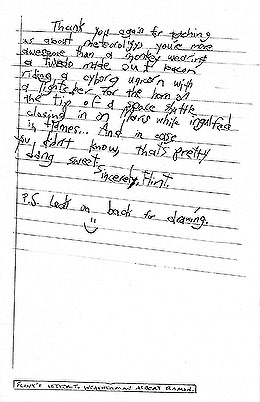 Thank you again for teaching
us about meteorolgy, you're more
awesome than a monkey wearing
a tuxedo made out bacon
riding a cyborg unicorn with
a lightsaber for the horn on
the tip of a space shuttle
closing in on Mars while ingulfed
in flames... And in case
you didn't know, that's pretty
dang sweet.
Sincerely, Flint.
P.S. Look on back for drawing.
LETTER TO WEATHERMAN ALBERT